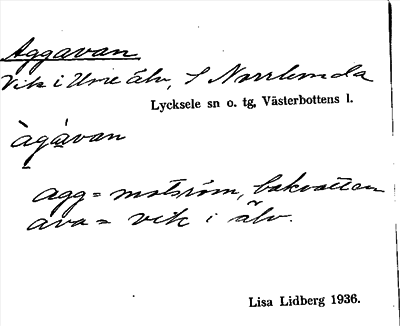 Aggavan
Vik i Ume älv, S Norrlunda
Lycksele sn o. tg, Västerbottens l.
àgàvan
agg = motström, bakvatten
ava = vik i älv.
Lisa Lidberg 1936.